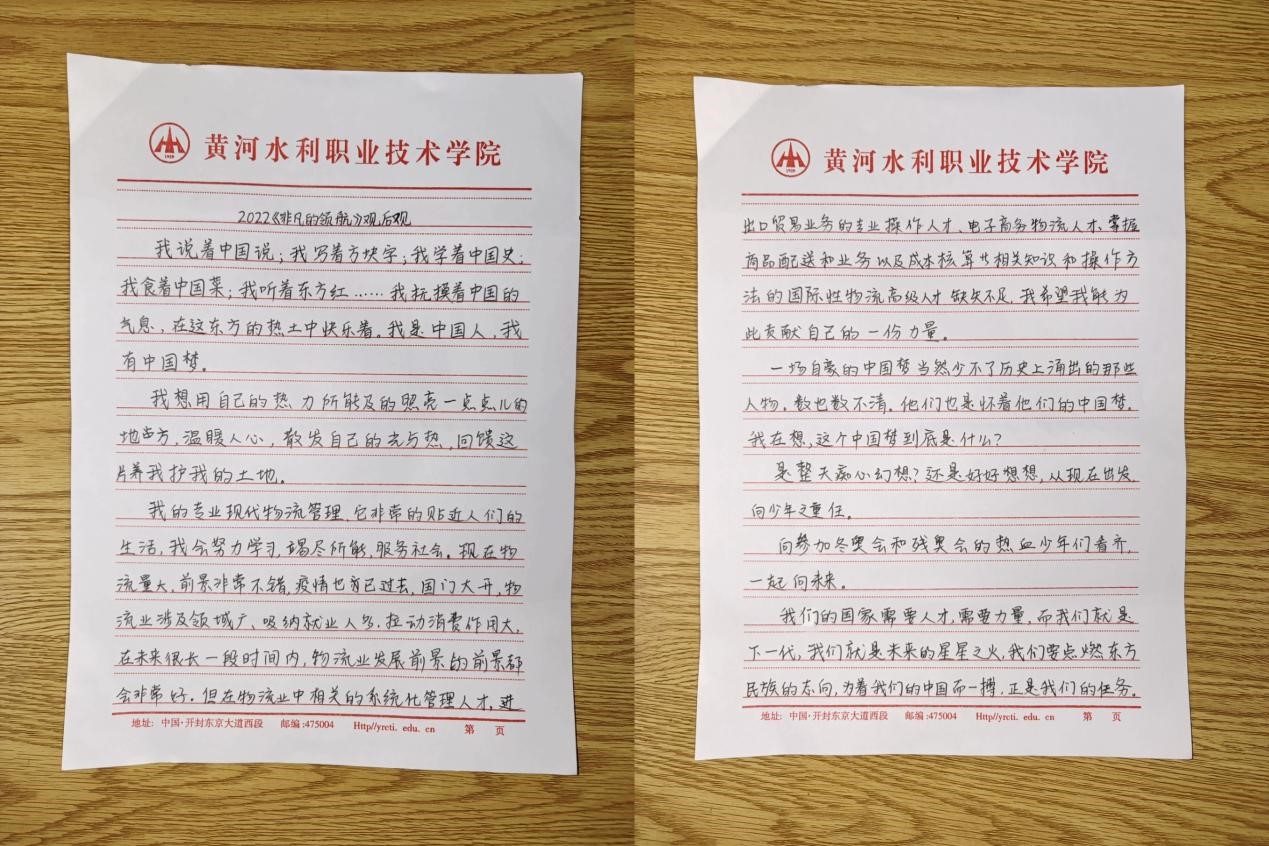 黄河水利职业技术学院
2022《非凡的领航》观后观
我说着中国说；我写着方块字；我学着中国史；
我食着中国菜；我听着东方红……我抚摸着中国的
气息，在这东方的热土中快乐着。我是中国人，我
有中国梦。
我想用自己的热力所能及的照亮一点点儿的
地方，温暖人心，散发自己的光与热，回馈这
片养我护我的土地。
我的专业现代物流管理，它非常的贴近人们的
生活，我会努力学习，竭尽所能，服务社会。现在物
流量大，前景非常不错，疫情也已过去，国门大开，物
流业涉及领域广、吸纳就业人多，拉动消费作用大，
在未来很长一段时间内，物流业发展前景的前景都
会非常好。但在物流业中相关的系统化管理人才，进
地址: 中国·开封东京大道西段 邮编:475004 Http//yrcti. edu. cn 第 页
黄河水利职业技术学院
出口贸易业务的专业操作人才、电子商务物流人才、掌握
商品配送和业务以及成本核算等相关知识和操作方
法的国际性物流高级人才缺失不足，我希望我能为
此贡献自己的一份力量。
一场自豪的中国梦当然少不了历史上涌出的那些
人物，数也数不清。他们也是怀着他们的中国梦。
我在想，这个中国梦到底是什么？
是整天痴心幻想？还是好好想想，从现在出发，
向少年之重任。
向参加冬奥会和残奥会的热血少年们看齐，
一起向未来。
我们的国家需要人才，需要力量，而我们就是
下一代，我们就是未来的星星之火，我们要点燃东方
民族的志向，为着我们的中国而一搏，正是我们的任务。
地址: 中国·开封东京大道西段 邮编:475004 Http//yrcti. edu. cn 第 页